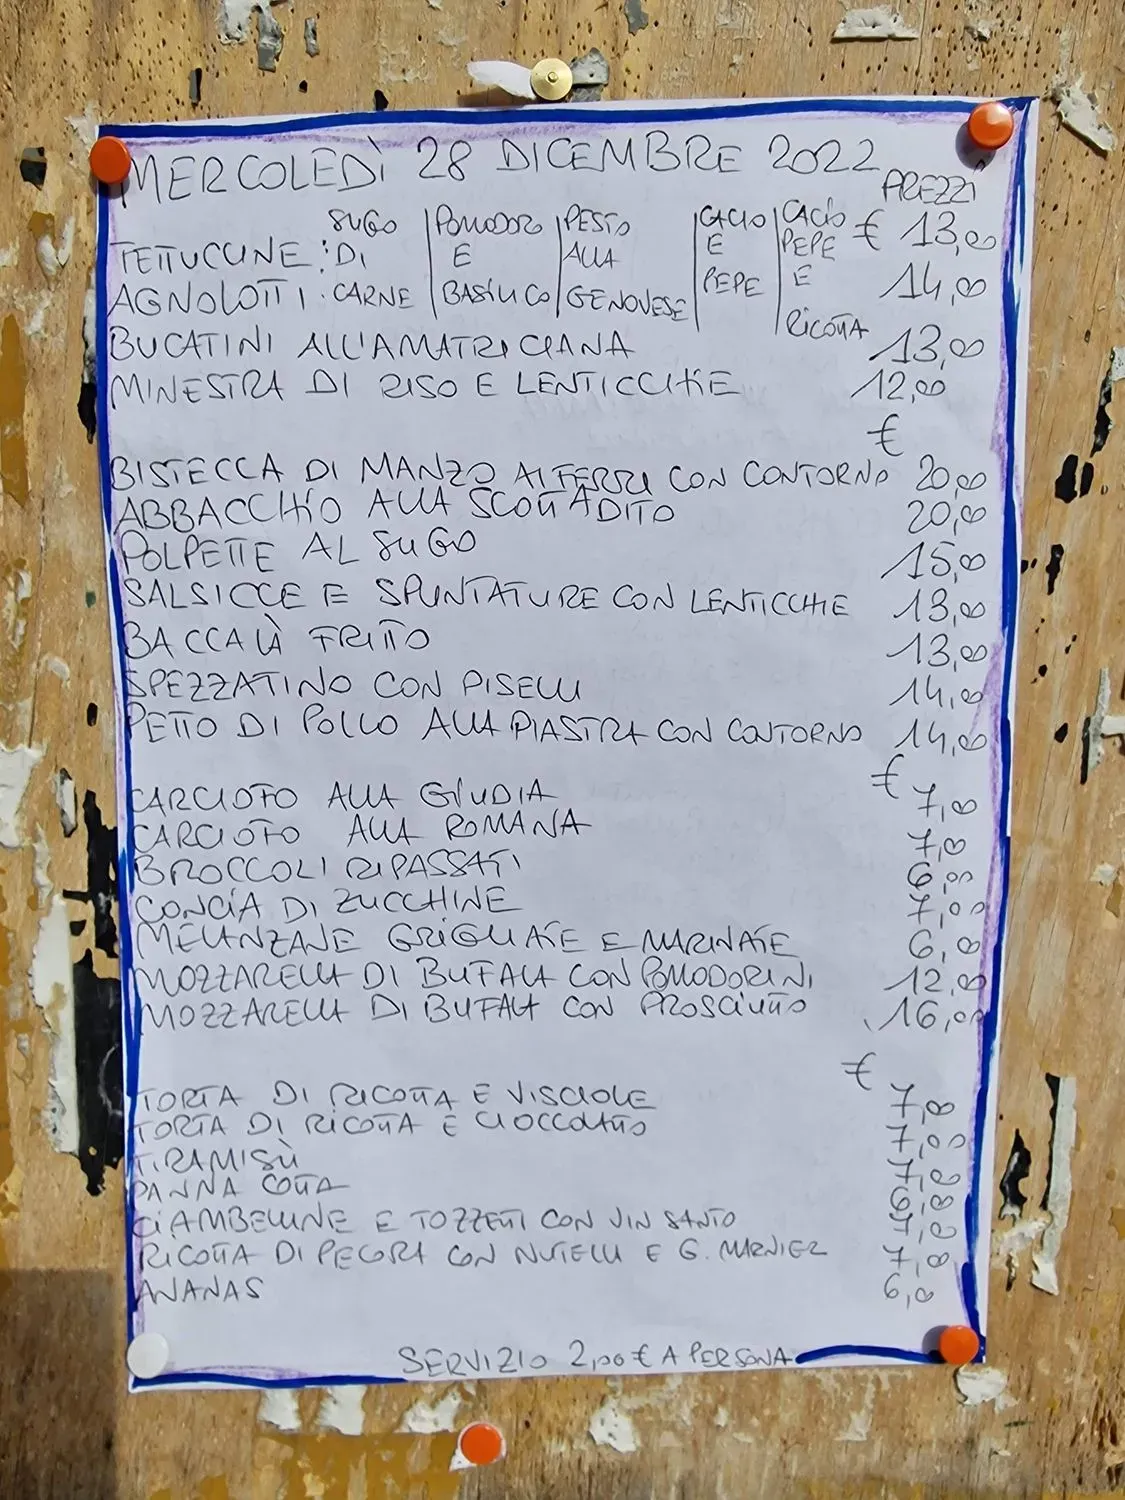 MERCOLEDÌ 28 DICEMBRE 2022
PREZZI
SUGO | POMODORO | PESTO | CACIO | CACIO € 13,00
FETTUCCINE : DI | E | ALLA | E | PEPE
AGNOLOTTI : CARNE | BASILICO | GENOVESE | PEPE | E 14,00
RICOTTA
BUCATINI ALL'AMATRICIANA 13,00
MINESTRA DI RISO E LENTICCHIE 12,00
€
BISTECCA DI MANZO AI FERRI CON CONTORNO 20,00
ABBACCHIO ALLA SCOTTADITO 20,00
POLPETTE AL SUGO 15,00
SALSICCE E SPUNTATURE CON LENTICCHIE 13,00
BACCALÀ FRITTO 13,00
SPEZZATINO CON PISELLI 14,00
PETTO DI POLLO ALLA PIASTRA CON CONTORNO 14,00
€
CARCIOFO ALLA GIUDIA 7,00
CARCIOFO ALLA ROMANA 7,00
BROCCOLI RIPASSATI 6,00
CONCIA DI ZUCCHINE 7,00
MELANZANE GRIGLIATE E MARINATE 6,00
MOZZARELLA DI BUFALA CON POMODORINI 12,00
MOZZARELLA DI BUFALA CON PROSCIUTTO 16,00
€
TORTA DI RICOTTA E VISCIOLE 7,00
TORTA DI RICOTTA E CIOCCOLATO 7,00
TIRAMISÙ 7,00
PANNA COTTA 6,00
CIAMBELLINE E TOZZETTI CON VIN SANTO 7,00
RICOTTA DI PECORA CON NUTELLA E G. MARNIER 7,00
ANANAS 6,00
SERVIZIO 2,00 € A PERSONA